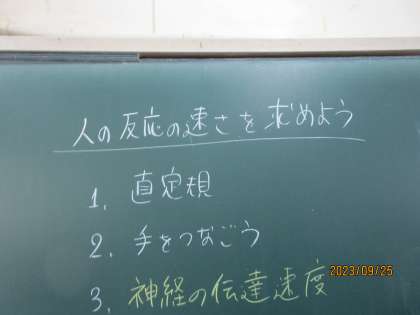 人の反応の速さを求めよう
1. 直定規
2. 手をつなごう
2023/09/25
3. 神経の伝達速度